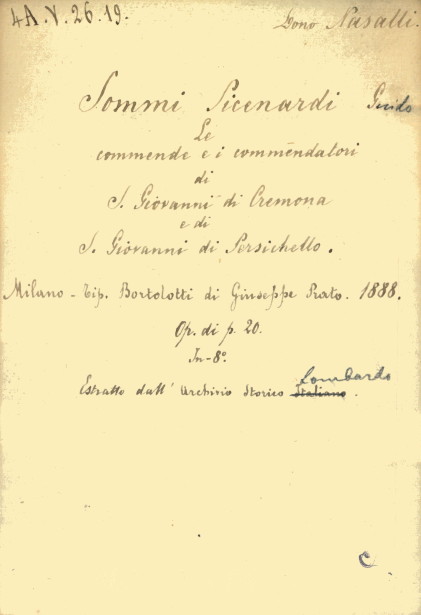 4A.V.26.19.
Dono Nasalli.
Sommi Picenardi Guido
Le
commende e i commendatori
di
S. Giovanni di Cremona
e di
S. Giovanni di Persichello.
Milano - Tip. Bortolotti di Giuseppe Prato. 1888.
Op. di p. 20.
In-8°.
Lombardo
Estratto dall' Archivio Storico Italiano.
C